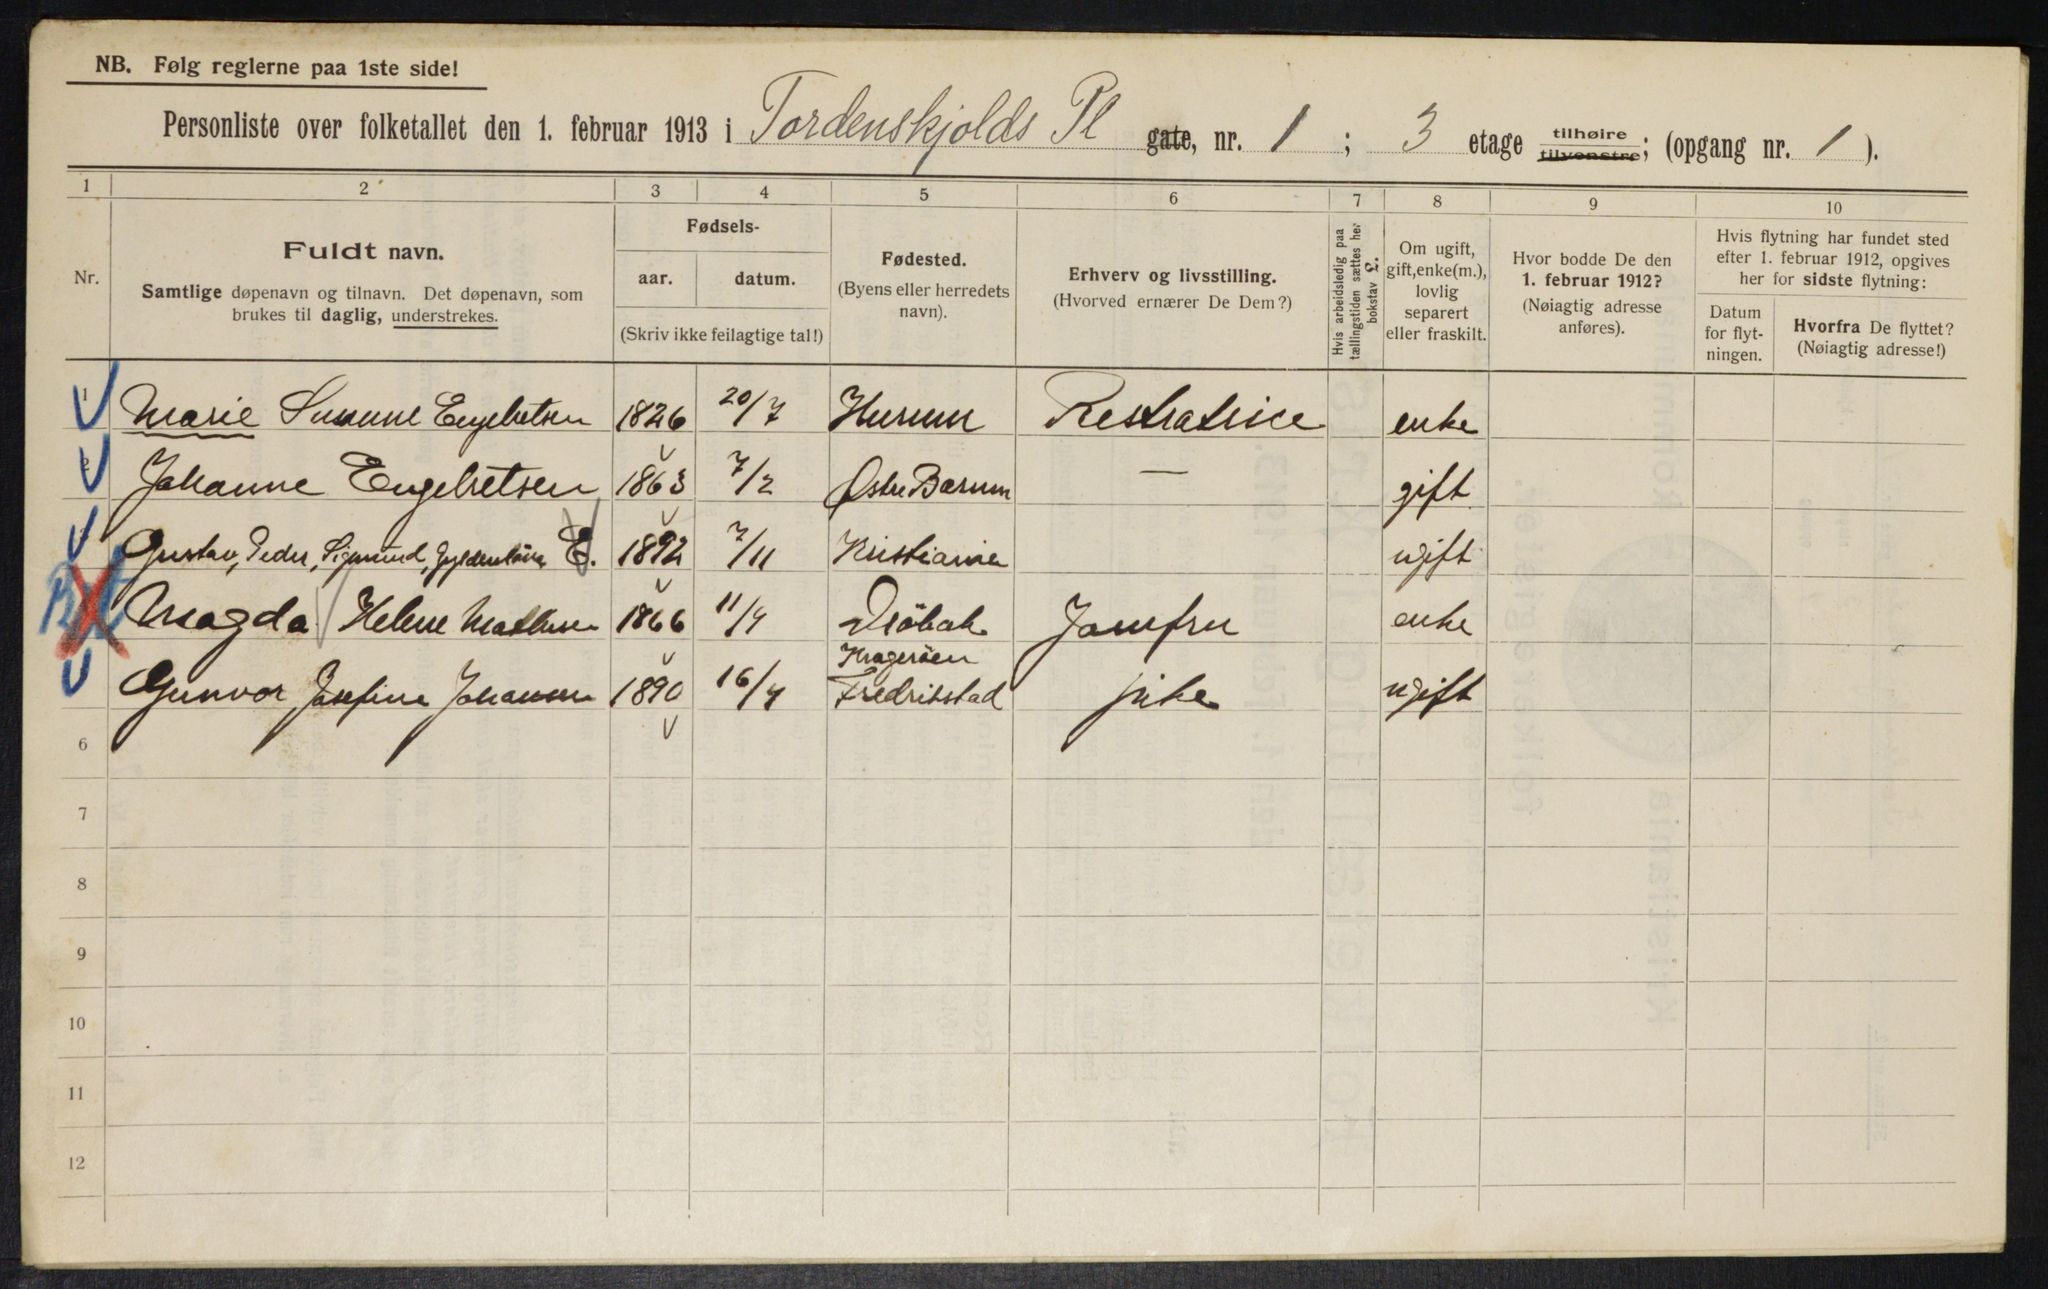 NB. Følg reglerne paa 1ste side!
Personliste over folketallet den 1. februar 1913 i Tordenskjolds Pl gate, nr. 1 ; 3 etage tilhøire tilvenstre; (opgang nr. 1 ).
1 2 3 4 5 6 7 8 9 10
Nr.
Fuldt navn.
Samtlige døpenavn og tilnavn. Det døpenavn, som
brukes til daglig, understrekes.
Fødsels-
aar. datum.
(Skriv ikke feilagtige tal!)
Fødested.
(Byens eller herredets
navn).
Erhverv og livsstilling.
(Hvorved ernærer De Dem?)
Hvis arbeidsledig paa
tællingstiden sættes her
bokstav L.
Om ugift,
gift, enke(m.),
lovlig
separert
eller fraskilt.
Hvor bodde De den
1. februar 1912?
(Nøiagtig adresse
anføres).
Hvis flytning har fundet sted
efter 1. februar 1912, opgives
her for sidste flytning:
Datum
for flyt-
ningen.
Hvorfra De flyttet?
(Nøiagtig adresse!)
1 Marie Susanne Engebretsen 1826 20/7 Hurum enke
2 Johanne Engebretsen 1863 7/2 Østre Bærum — gift
Gustav, Peder, Sigmund, E. 1892 7/11 Kristiania ugift
Magda Helene 1866 11/4 Drøbak Jomfru enke
Kragerøen
Gunvor Josefine Johansen 1890 16/4 Fredrikstad pike ugift
6
7
8
9
10
11
12